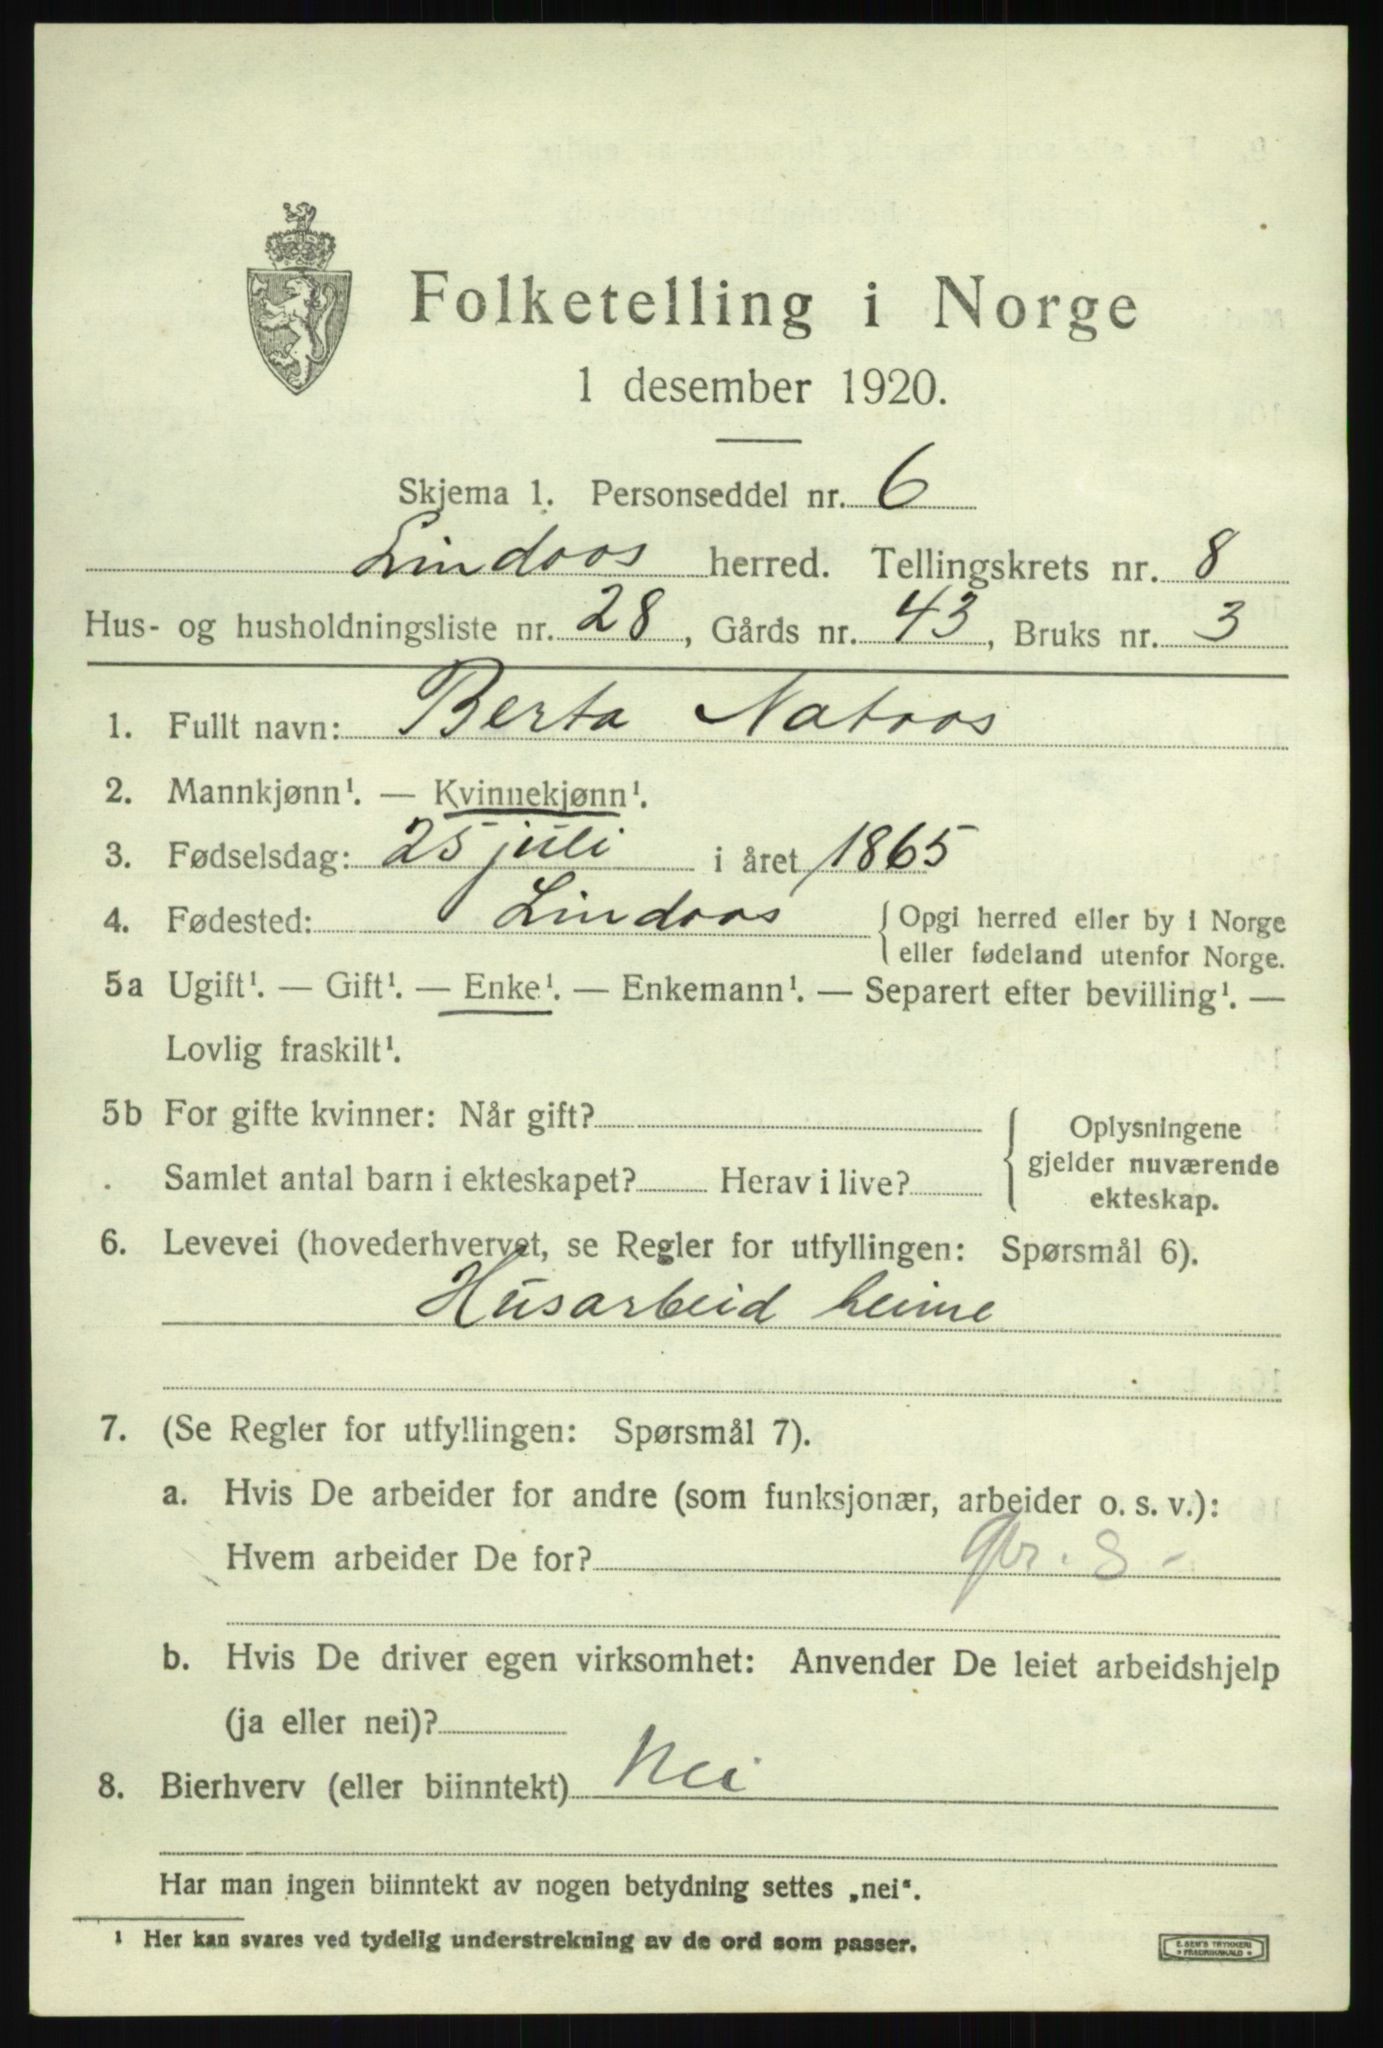 Folketelling i Norge
1 desember 1920.
Skjema 1. Personseddel nr. 6
Lindoos herred. Tellingskrets nr. 8
Hus- og husholdningsliste nr. 28, Gårds nr. 43, Bruks nr. 3
1. Fullt navn: Berta Natoos
2. Mannkjønn¹. — Kvinnekjønn¹.
3. Fødselsdag: 25 juli i året 1865
4. Fødested: Lindoos { Opgi herred eller by i Norge
eller fødeland utenfor Norge.
5a Ugift¹. — Gift¹. — Enke¹. — Enkemann¹. — Separert efter bevilling¹. —
Lovlig fraskilt¹.
5b For gifte kvinner: Når gift? { Oplysningene
gjelder nuværende
ekteskap.
Samlet antal barn i ekteskapet? Herav i live?
6. Levevei (hovederhvervet, se Regler for utfyllingen: Spørsmål 6).
Husarbeid heime
7. (Se Regler for utfyllingen: Spørsmål 7).
a. Hvis De arbeider for andre (som funksjonær, arbeider o. s. v.):
Hvem arbeider De for?
b. Hvis De driver egen virksomhet: Anvender De leiet arbeidshjelp
(ja eller nei)?
8. Bierhverv (eller biinntekt) Nei
Har man ingen biinntekt av nogen betydning settes „nei“.
¹ Her kan svares ved tydelig understrekning av de ord som passer.
E. SEM'S TRYKKERI
FREDRIKSHALD